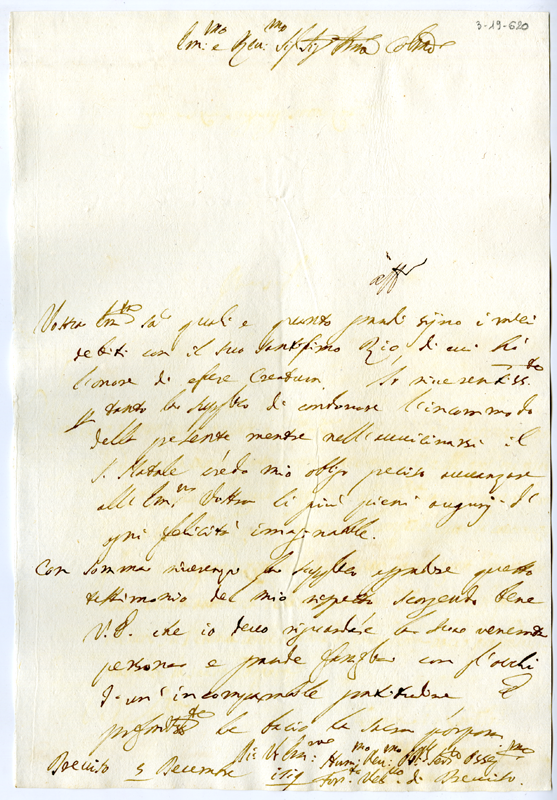 3-19-620
Em:mo e Rev:mo Sig Sig Pne Colmo
Vostra Em:za sa quali e quanto grandi sijno i miei
debiti con il suo Santissimo Zio, di cui hò
l'onore di essere Creatura. Io
tanto la supplico di condonare l'incommodo
della presente mentre nell'auuicinarsi il
S. Natale credo mio obligo preciso auuanzare
all'Em:za Vostra li più pieni augurj di
ogni felicità imaginabile.
Con somma riuerenza la supplico aggradire questo
testimonio del mio rispetto scorgendo bene
V. E. che io deuo riguardare la sua
persona e grande famiglia con gl'occhi
d'un' incomparabile gratitudine E
le bacio la sacra porpora
Di V. Em:
Hum:mo
di
Decembre